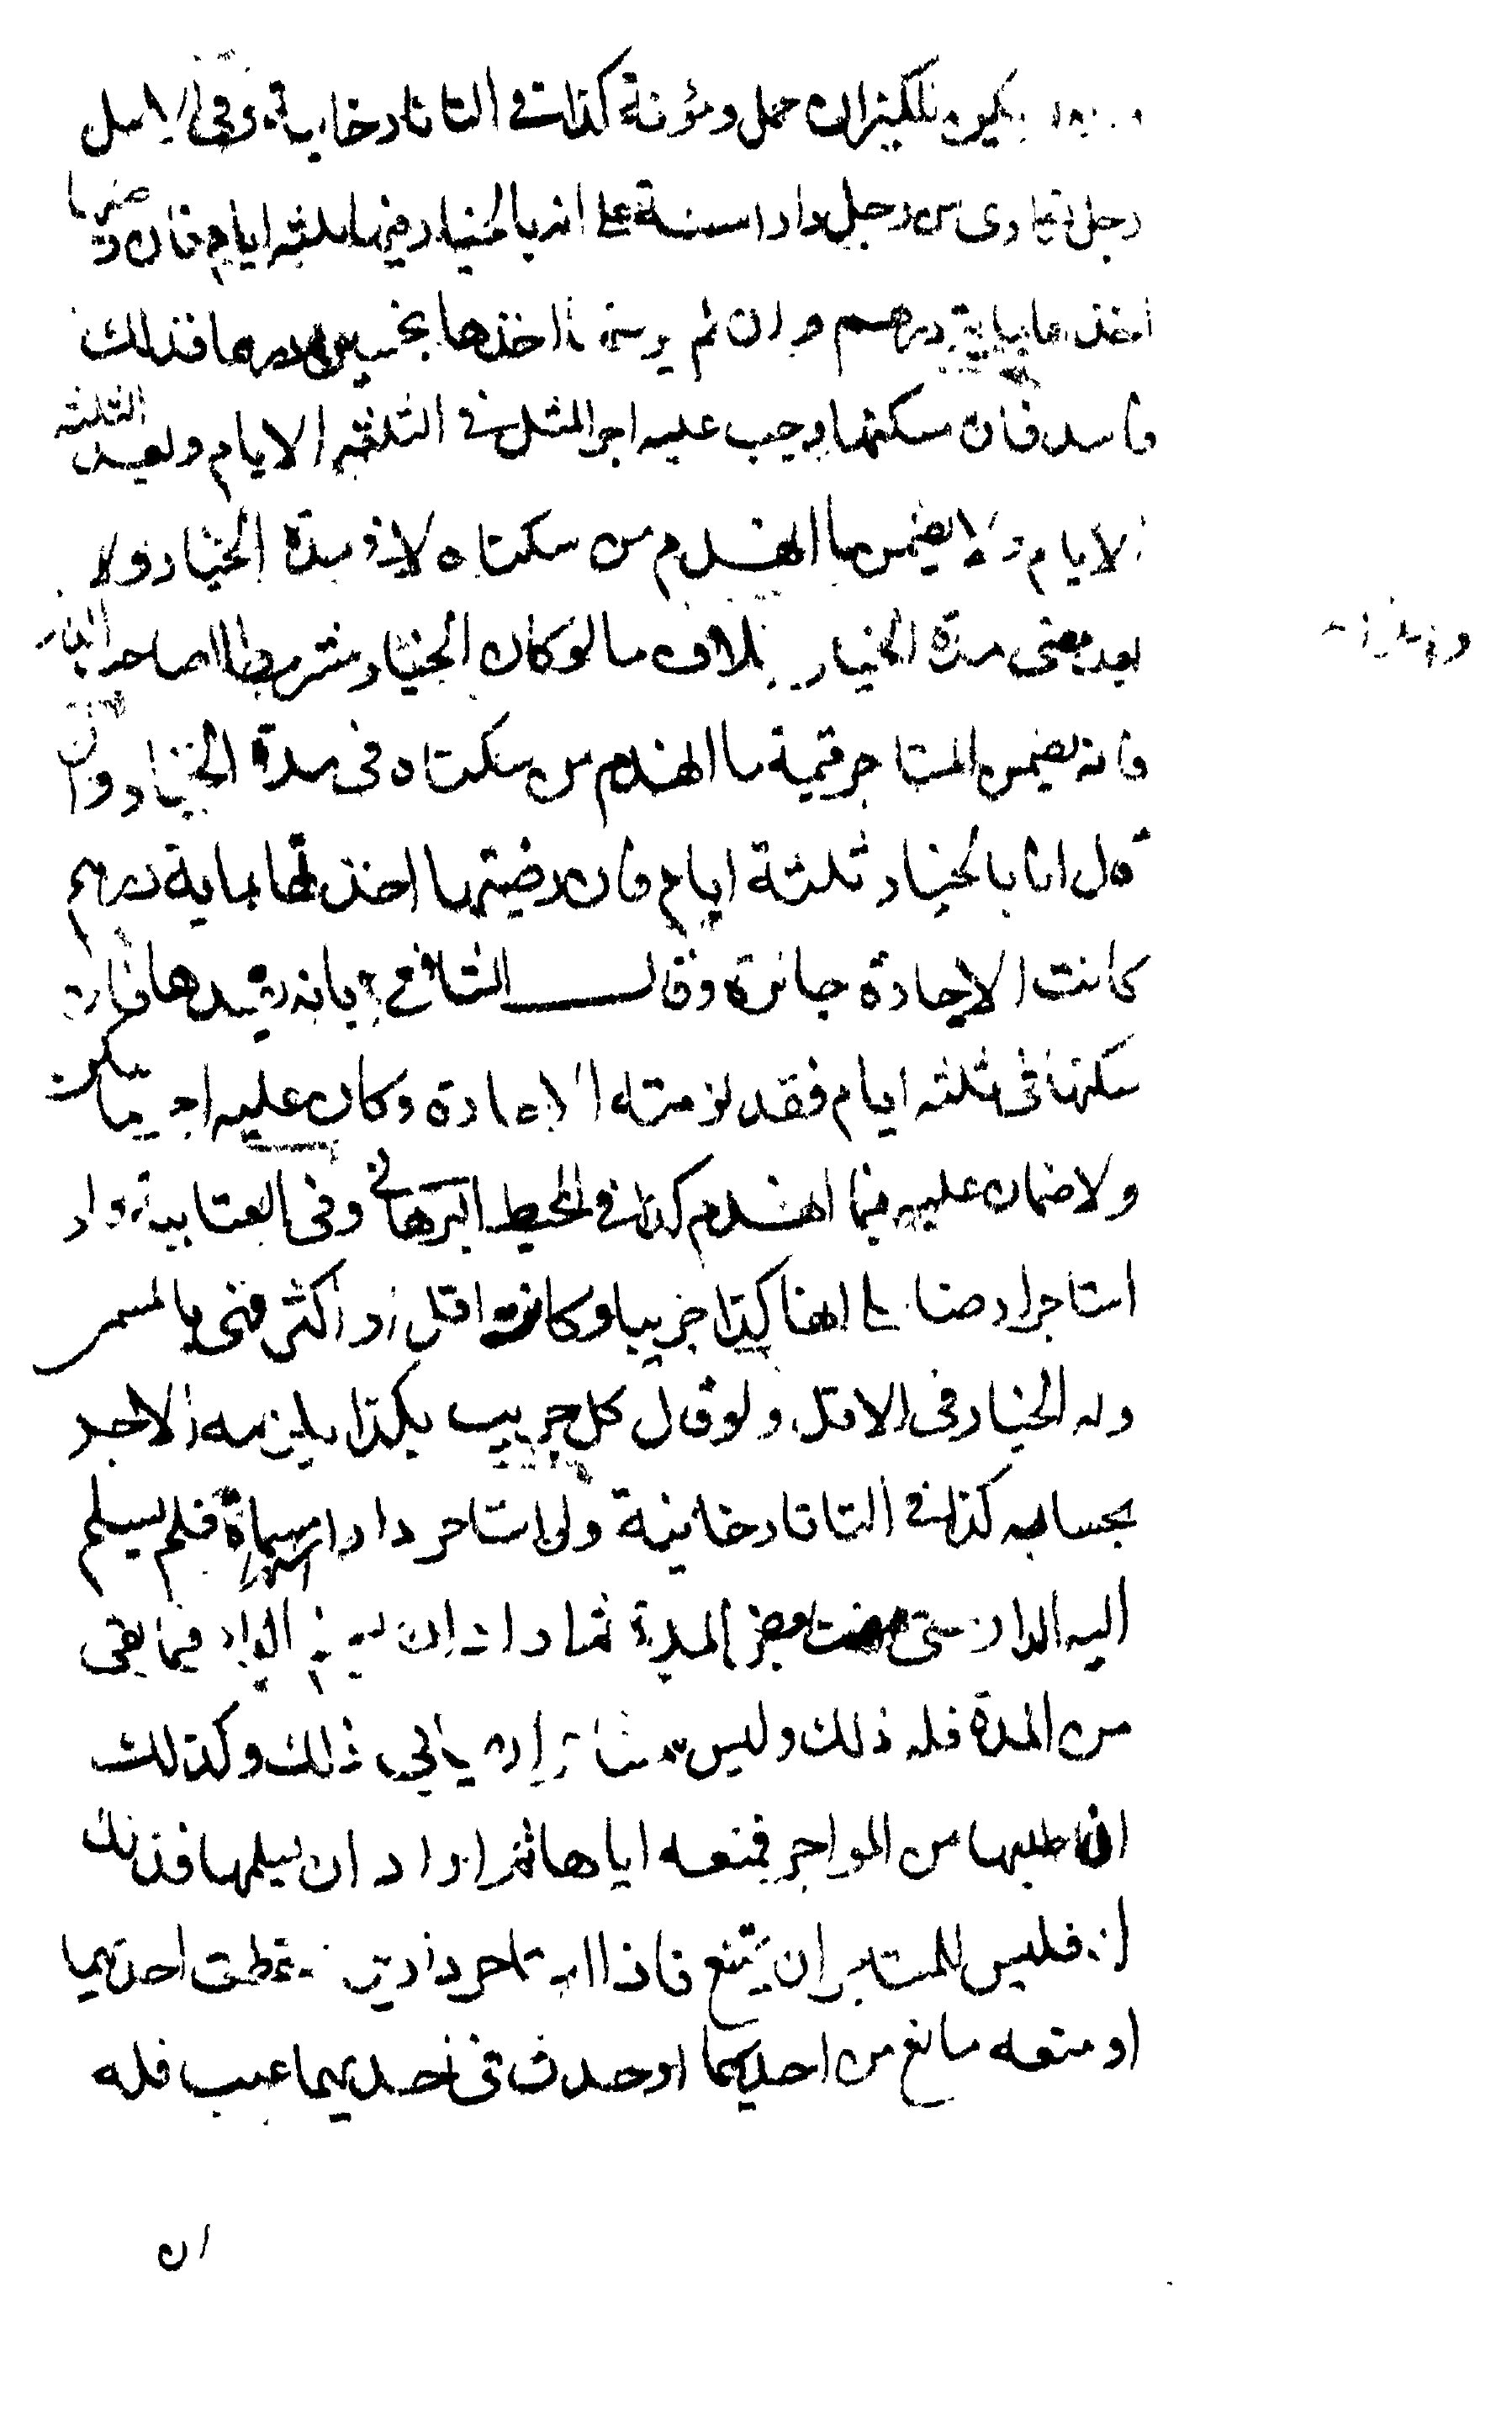 يكون للكيزان حمل ومؤنة كذا في التاتارخانية وفي الاصل
رجل تكارى من رجل دارا سنة على انه بالخيار فيها ثلثة ايام فان رضيها
اخذها بماية درهم وان لم يرض اخذها بخمسين درهما فذلك
فاسد فان سكنها وجب عليه اجر المثل في الثلثة الايام وبعد الثلثة
الايام ولا يضمن ما انهدم من سكناه لا في مدة الخيار ولا
بعد مضى مدة الخيار بخلاف ما لو كان الخيار مشروطا لصاحب الدار
فانه يضمن المستاجر قيمة ما انهدم من سكناه في مدة الخيار وان
قال انا بالخيار ثلثة ايام فان رضيتها اخذتها بماية درهم
كانت الاجارة جائزة وقال فان
سكنها في ثلثه ايام فقد لزمته الاجارة وكان عليه اجر ما سكن
ولا ضمان عليه فيما انهدم كذا في المحيط البرهاني وفي العتابية ولو
استاجر ارضا على انها كذا جريبا وكانت اقل او اكثر فهى بالمسمى
وله الخيار في الاقل ولو قال كل جريب بكذا يلزمه الاجر
بحسابه كذا في التاتارخانية ولو استاجر دارا مسماة فلم يسلم
اليه الدار حتى مضت بعض المدة ثم اراد ان الدار فيما بقى
من المدة فله ذلك وليس ان يابى ذلك وكذلك
ان طلبها من المواجر فمنعه اياها ثم اراد ان يسلمها فذلك
له فليس للمستاجر ان يمتنع فاذا استاجر دارين فسقطت احديهما
او منعه مانع من احديهما او حدث في احديهما عيب فله
ان